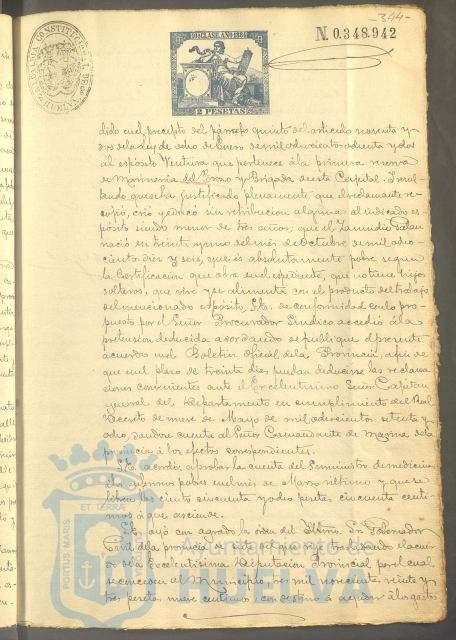 344
N. 0.348.942
10ª CLASE. AÑO 1884
2 PESETAS
dido en el precepto del párrafo quinto del artículo noventa y
dos de la ley de ocho de Enero de mil ochocientos ochenta y dos
al expósito Ventura que pertenece á la primera reserva
de Marinería del Trozo y Brigada de esta Capital. Resul-
tando que se ha justificado plenamente que el reclamante re-
cojió, crió y educó sin retribucion alguna al indicado es-
pósito siendo menor de tres años; que el
nació en treinta y uno del mes de Octubre de mil ocho-
cientos diez y seis, que es absolutamente pobre segun
la Certificacion que obra en el espediente, que no tiene hijos
solteros, que vive y se alimenta con el producto del trabajo
del mencionado expósito, S.E. de conformidad con lo pro-
puesto por el Señor Procurador Síndico accedió á la
pretension deducida acordando se publique el presente
acuerdo en el Boletin Oficial de la Provincia, afin de
que en el plazo de treinta dias puedan deducirse las reclama-
ciones convenientes ante el Excelentisimo Señor Capitan
general del Departamento en cumplimiento del Real
Decreto de nueve de Mayo de mil ochocientos setenta y
ocho, dandose cuenta al Señor Comandante de Marina de la
provincia á los efectos correspondientes.
S.E. acordó aprobar la cuenta del Suministro de medicinas
á los enfermos pobres en el mes de Marzo último y que se
libren las ciento cincuenta y ocho pesetas cincuenta centi-
mos á que asciende.
S.E. oyó con agrado la orden del Iltmo. Sr. Gobernador
Civil de la provincia trasladando el acuer-
do de la Excelentisima Diputacion Provincial por el cual
se conceden al Municipio tres mil novecientas veinte y
tres pesetas nueve centimos, con destino á ayudar á los gastos
PORTUS MARIS
ET TERRÆ
CUSTODIA
Ayuntamiento de
HUELVA